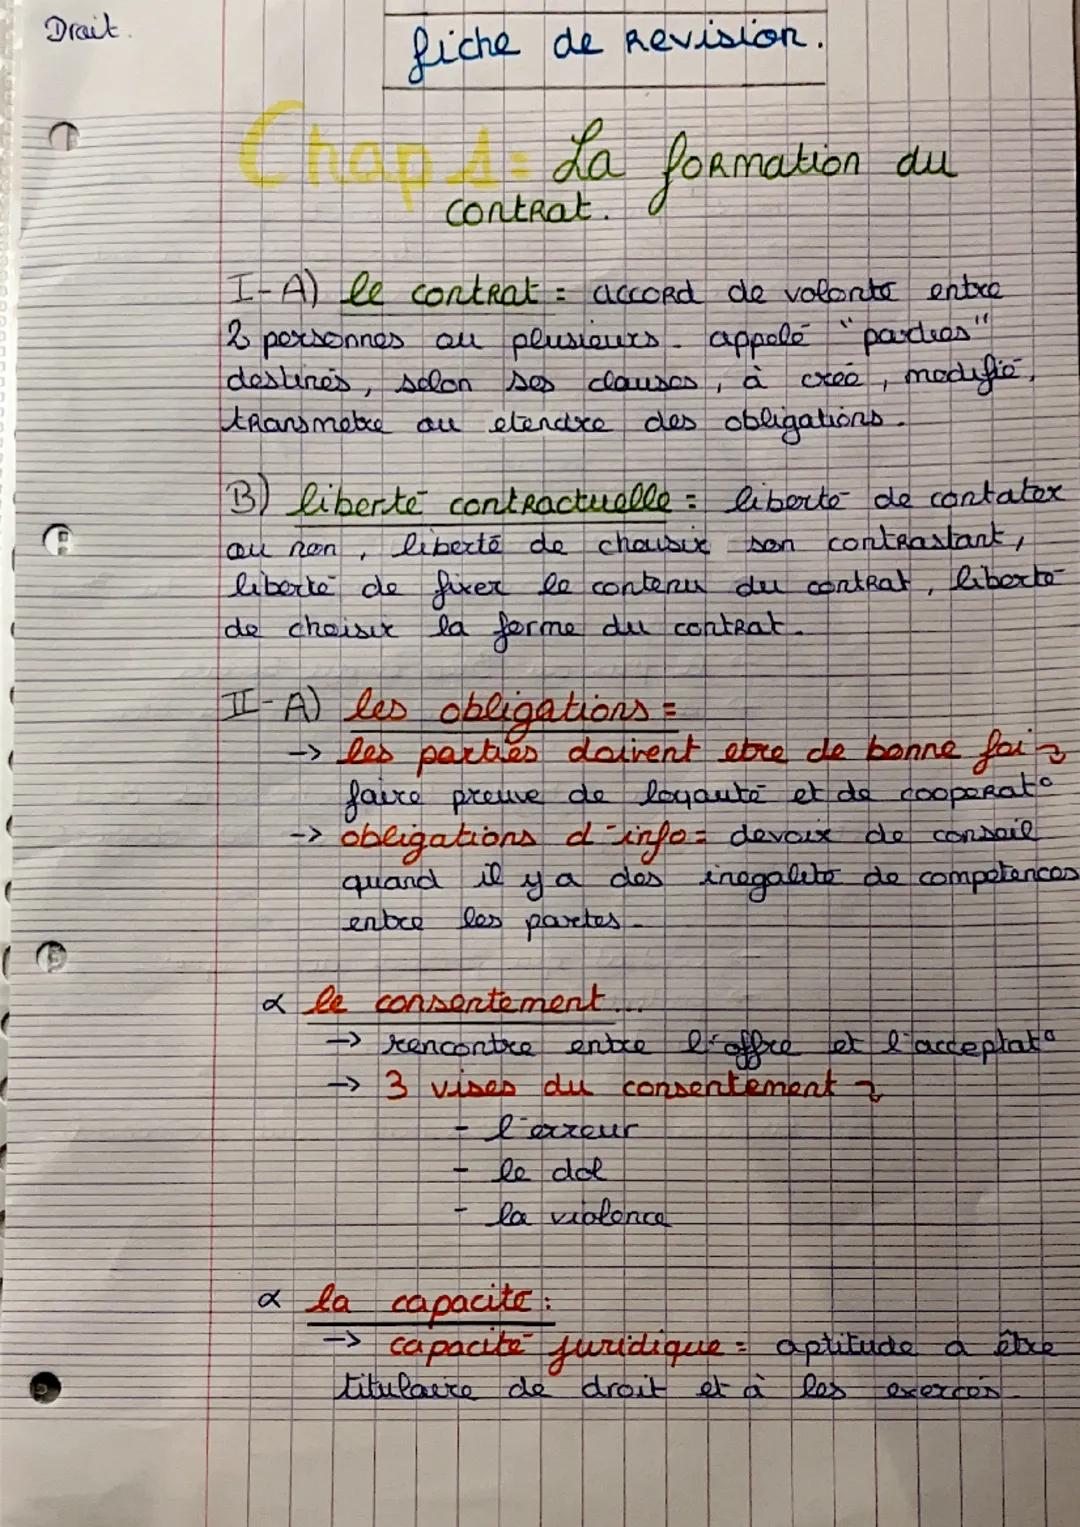 Droit.
fiche de revision.
Chap 1: La formation du
contrat.
I-A) le contrat = accord de volonté entre
2 personnes ou plusieurs. appelé "parties"
destinés, selon ses clauses, à créé, modifié,
transmetre ou etendre des obligations.
B) liberté contractuelle = liberté de contater
ou non, liberté de choisir son contrastant,
liberté de fixer le contenu du contrat, liberté
de choisir la forme du contrat.
II-A) les obligations =
-> les parties doivent etre de bonne foi
faire preuve de loyauté et de cooperat°
-> obligations d'info = devoir de conseil
quand il y a des inegalité de competences
entre les partes.
α le consentement...
-> rencontre entre l'offre et l'acceptat°
-> 3 vises du consentement
- l'erreur
- le dol
- la violence
α la capacité :
-> capacité juridique = aptitude a être
titulaire de droit et à les exercés.